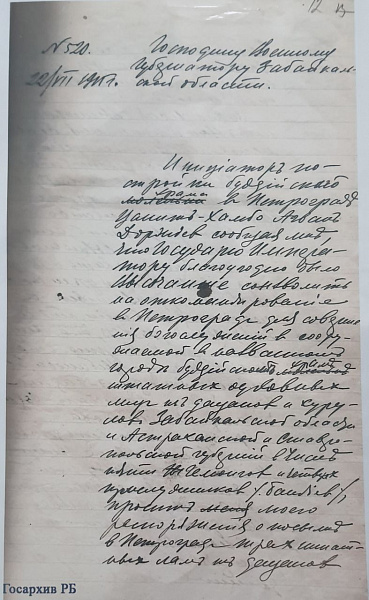 12
№ 520.
22/VII 1915 г.
Господину Военному
Губернатору Забайкаль-
ской области.
Инициаторъ по-
стройки буддiйского
храма
в Петрограде
Цанит-Хамбо Агван
Доржиев сообщая мне,
что Государю Импера-
тору благоугодно было
Высочайше соизволить
на откомандирование
в Петроград для соверше-
ния богослужений в соору-
жаемом в названном
храме
городе буддiйском
штатных духовных
лиц из дацанов и хуру-
лов, Забайкальской области
и Астраханской и Ставро-
польской губерний в числе
пяти и четырех
прислужников (банди),
просит моего
распоряжения о посылке
в Петроград трех штат-
ных лам из дацанов
Госархив РБ